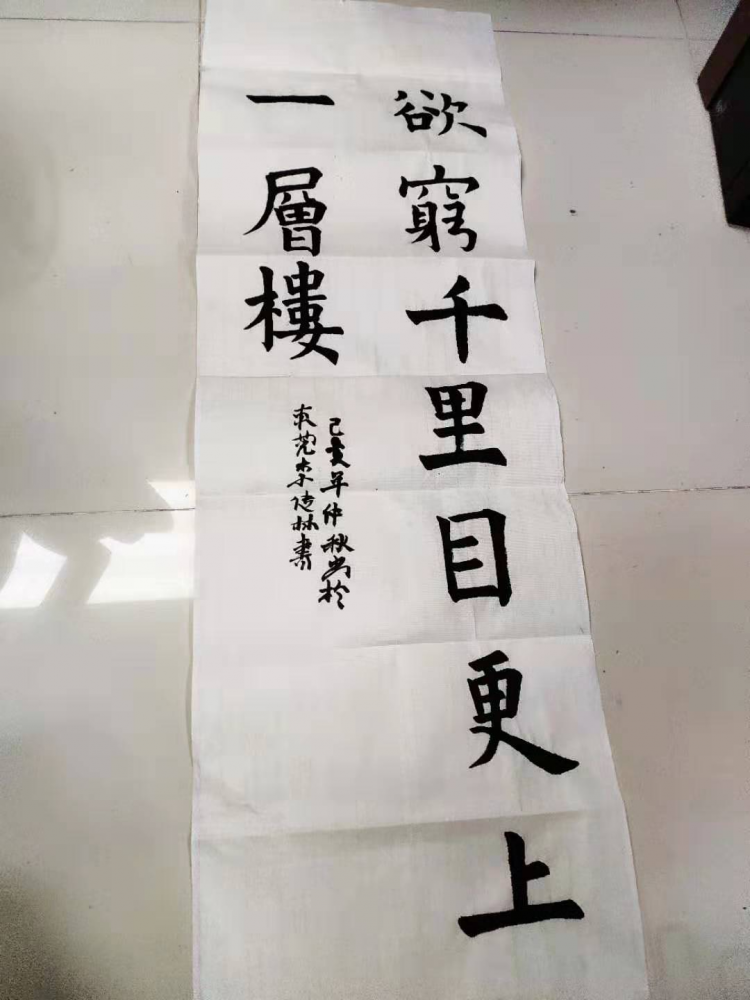 欲窮千里目更上
一層樓
己亥年仲秋書於
東莞李传林書